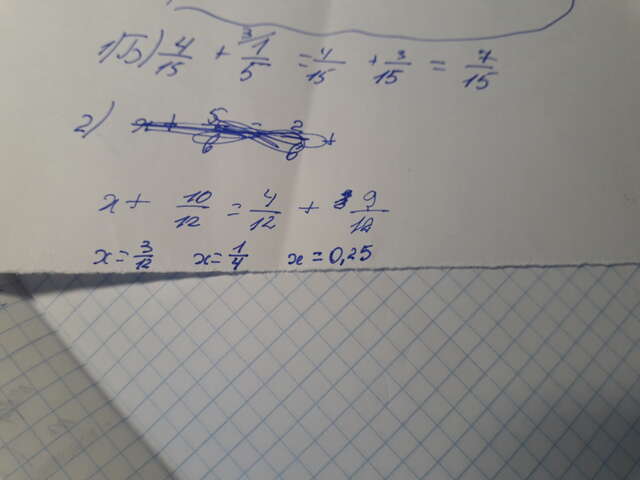 1)Б) 4/15 + 3/1/5 = 4/15 + 3/15 = 7/15
2)
x + 10/12 = 4/12 + 9/12
x = 3/12 x = 1/4 x = 0,25